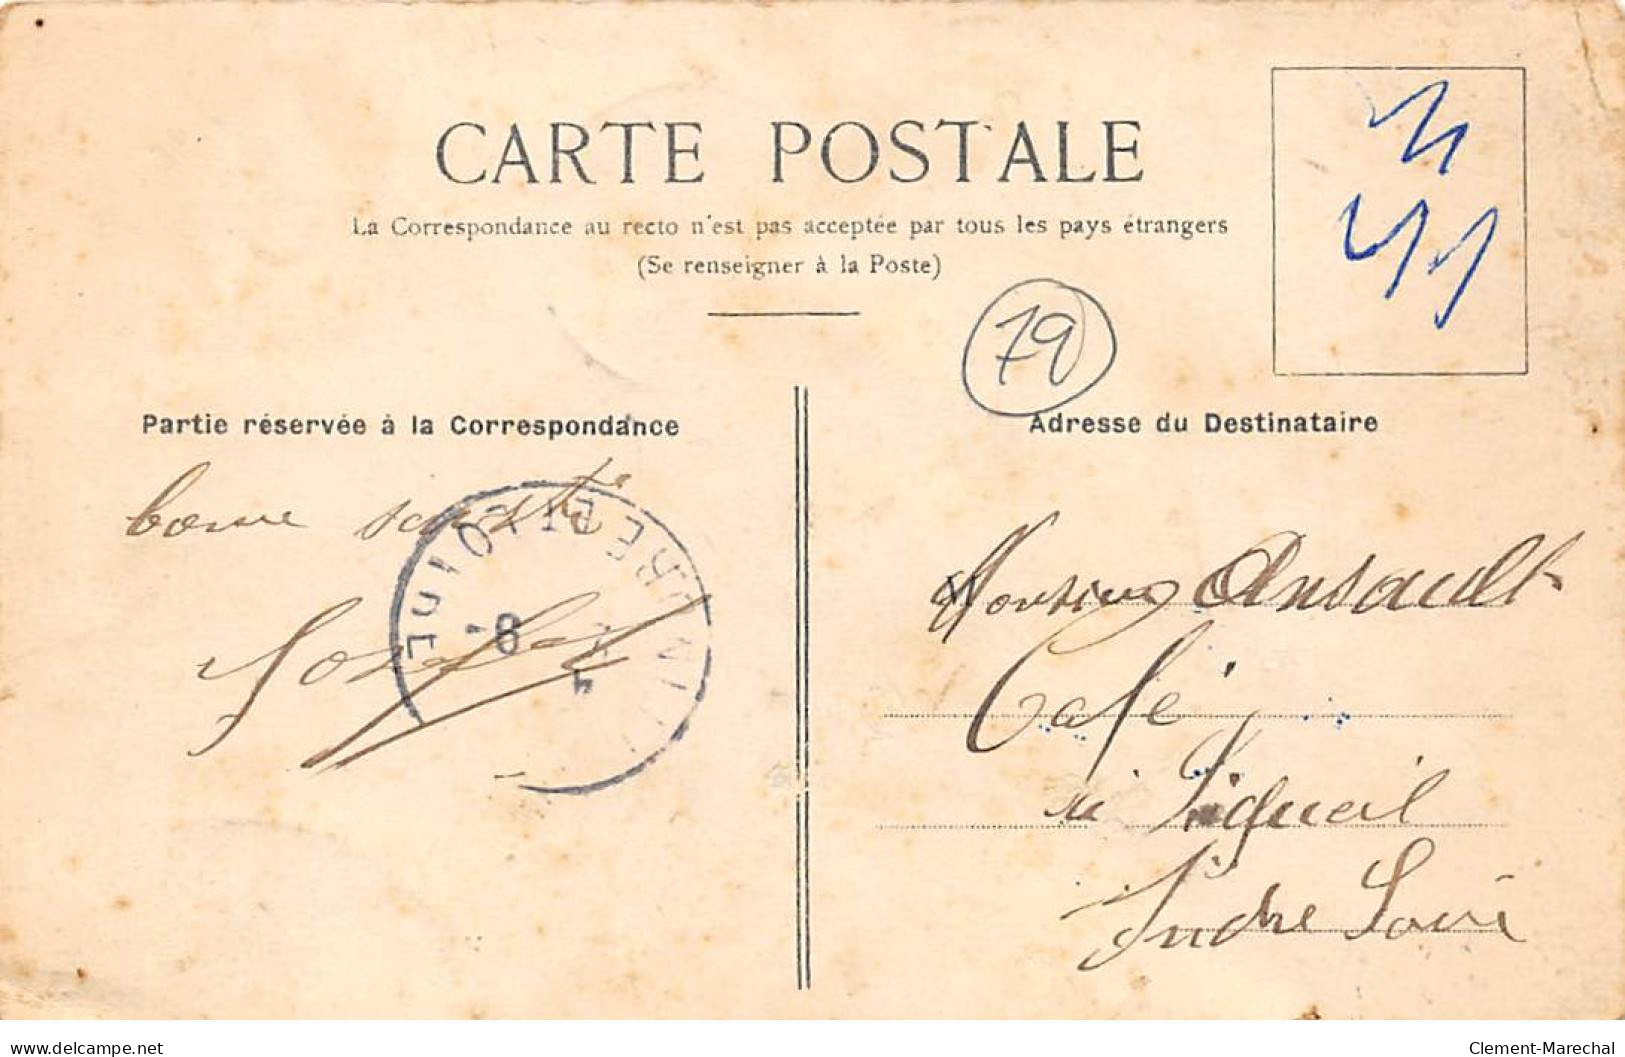 CARTE POSTALE
La Correspondance au recto n'est pas acceptée par tous les pays étrangers
(Se renseigner à la Poste)
79
Partie réservée à la Correspondance
Adresse du Destinataire
bonne santé
Monsieur Ansault
Café
à Ligueil
Indre Loire
delcampe.net
Clement-Marechal